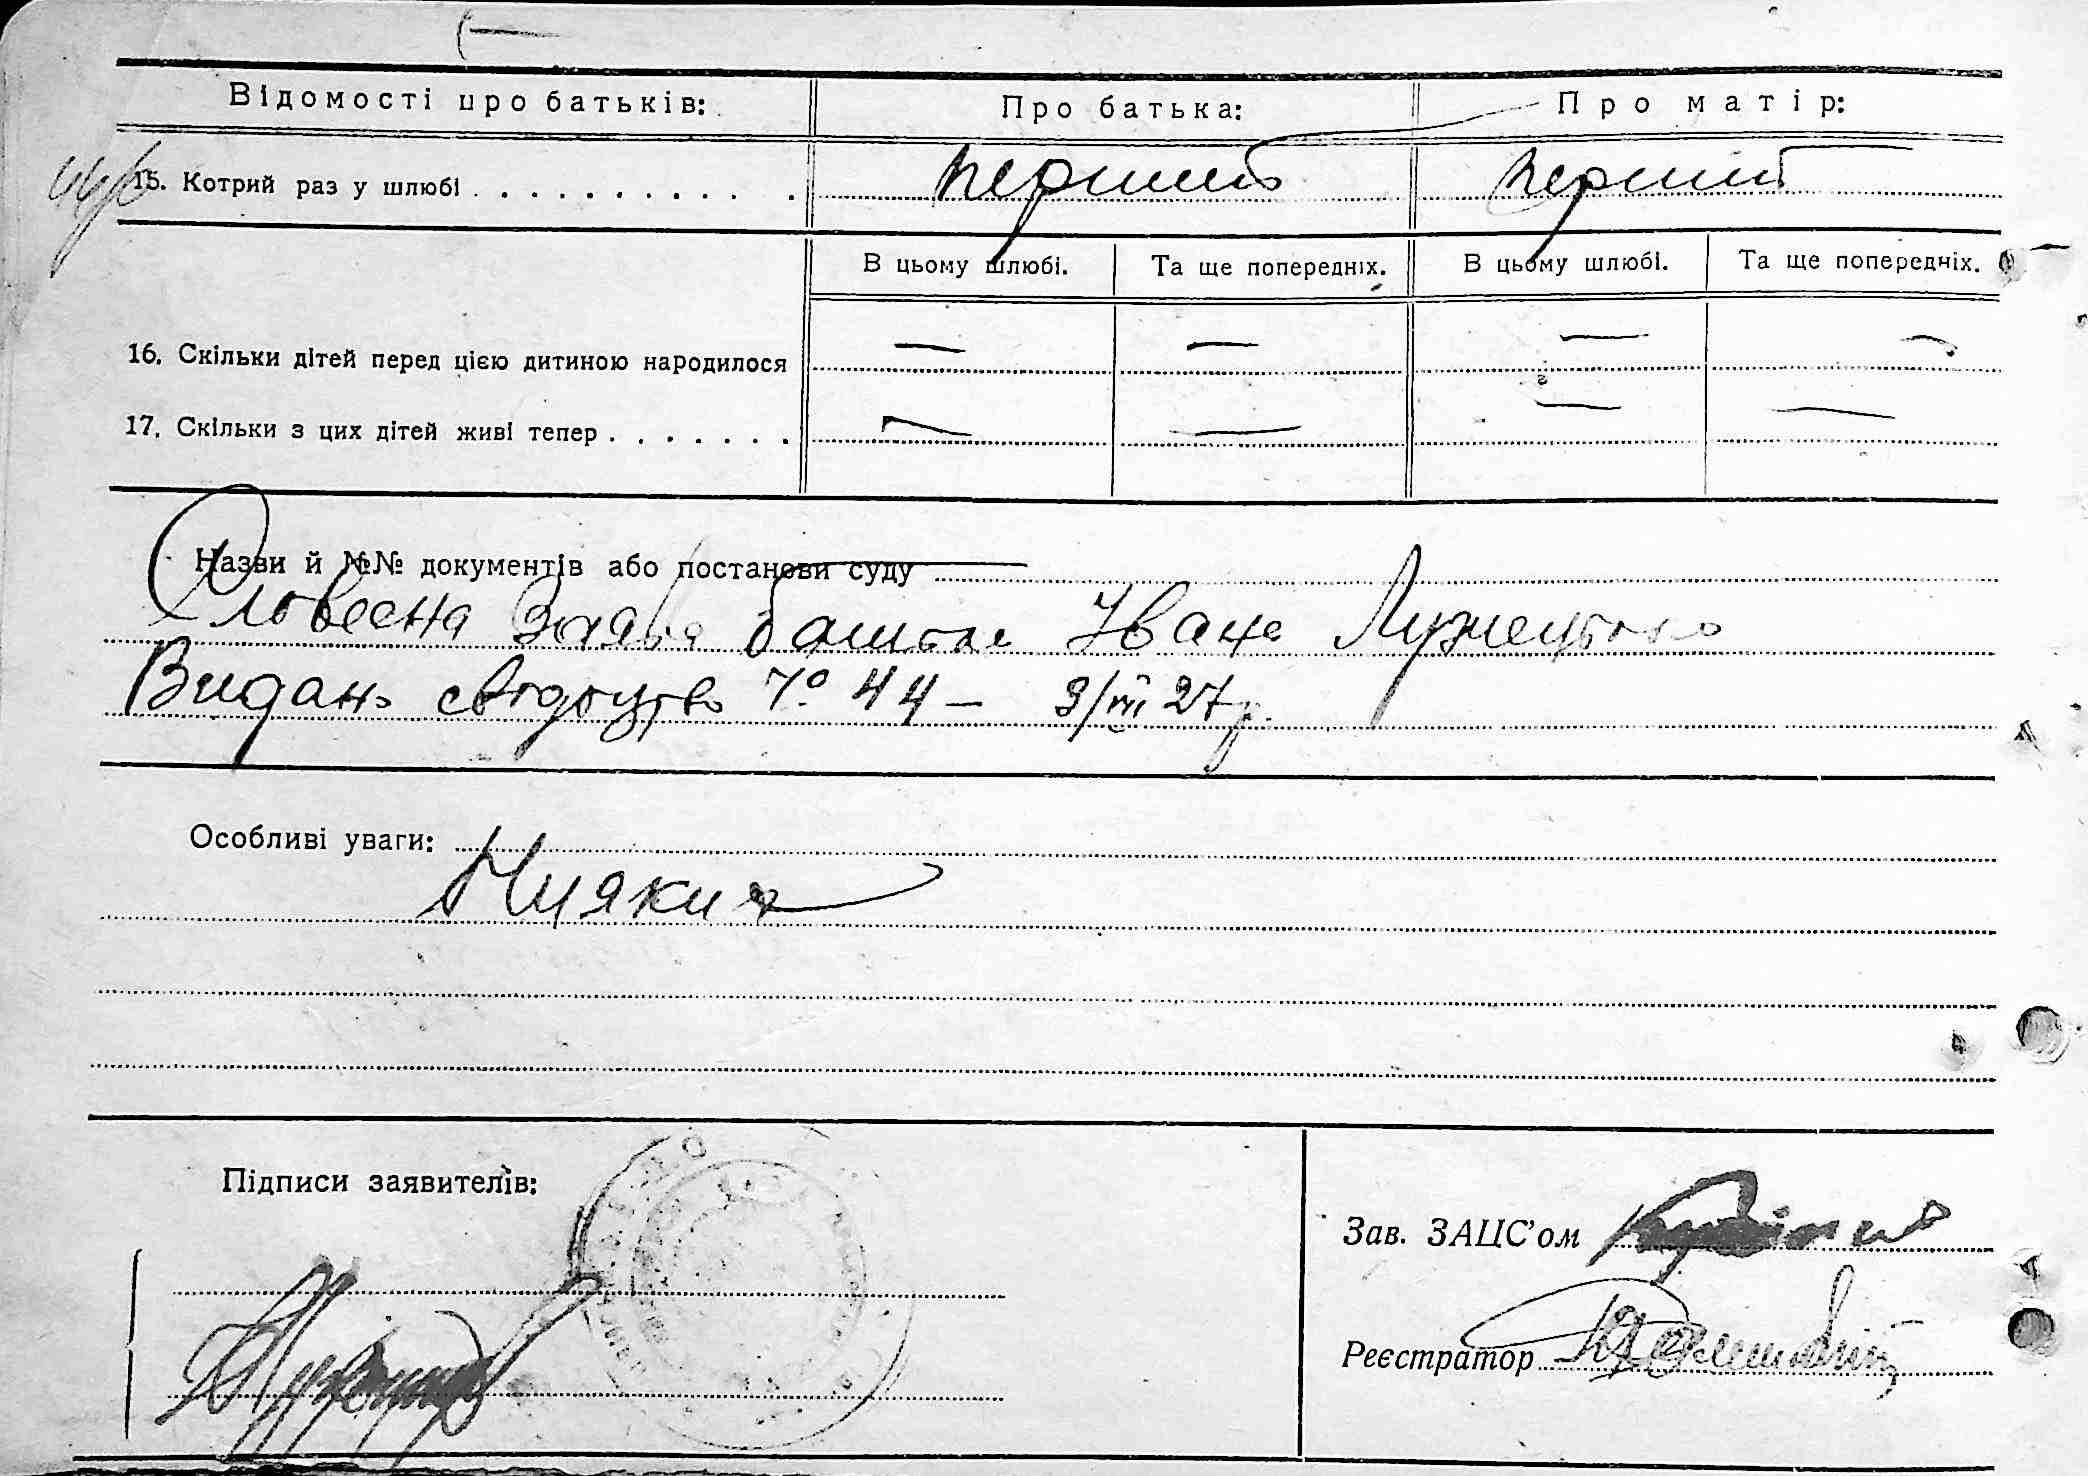 Відомості про батьків: Про батька: Про матір:
15. Котрий раз у шлюбі . . . . . . . . . . перший перший
В цьому шлюбі. Та ще попередніх. В цьому шлюбі. Та ще попередніх.
16. Скільки дітей перед цією дитиною народилося — — — —
17. Скільки з цих дітей живі тепер . . . . . . . — — — —
Назви й №№ документів або постанови суду
Словесна заява батька Івана Лужецького
Видано свідоцтво № 44 — 9/III 27 р.
Особливі уваги:
Ніяких
Підписи заявителів:
Зав. ЗАЦС'ом
Реєстратор